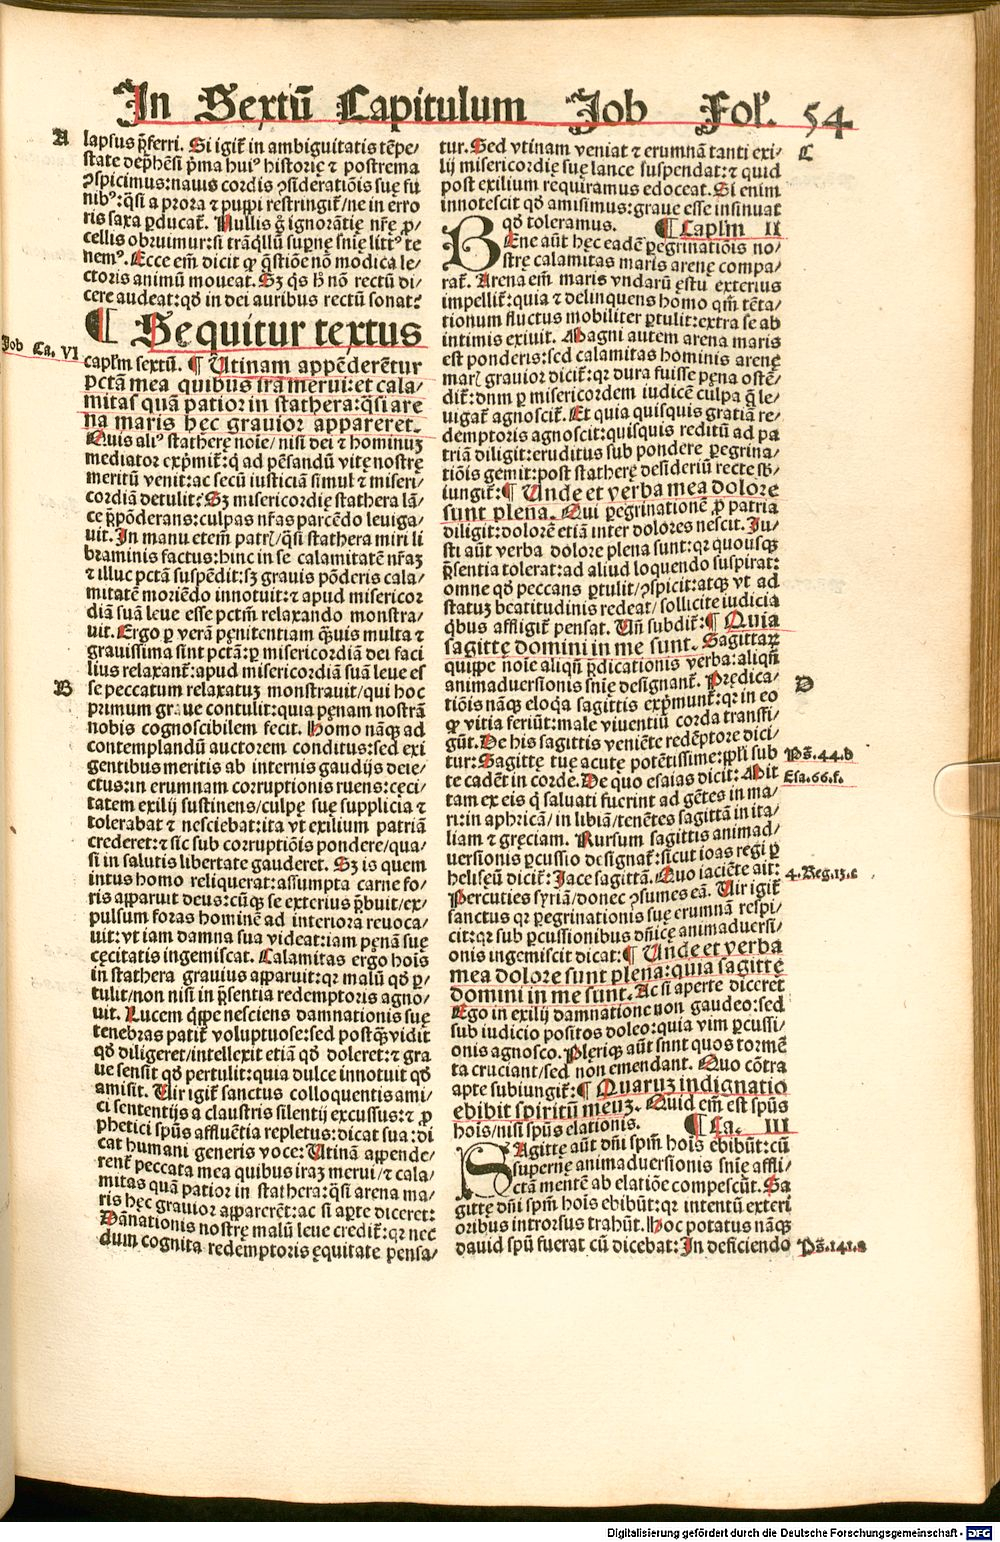 In Sextū Capitulum Job Fol'. 54
A
lapsus p̄ferri. Si igit̄ in ambiguitatis tēpe/
state dep̄hēsi p̄ma huiꝰ historię ⁊ postrema
ꝯspicimus: nauis cordis ꝯsideratiōis suę fū
nibꝰ: q̄si a prora ⁊ puppi restringit̄/ne in erro
ris saxa ꝑducat̄. Nullis ḡ ignorātię nr̄ę ꝓ/
cellis obruimur: si trāq̄llū supnę snīe littꝰ te
nemꝰ. Ecce em̄ dicit ꝙ q̄stiōe nō modica le/
ctoris animū moueat. Sꝫ q̄s h̄ nō rectū di/
cere audeat: qd̄ in dei auribus rectū sonat:
¶ Sequitur textus
Job Ca. VI
capl̄m sextū. ¶ Utinam appēderētur
pctā mea quibus irā merui: et cala/
mitas quā patior in stathera: q̄si are
na maris hęc grauior appareret.
Quis aliꝰ statherę noīe/nisi dei ⁊ hominuꝫ
mediator exp̄mit̄: q̄ ad pēsandū vitę nostrę
meritū venit: ac secū iusticiā simul ⁊ miseri/
cordiā detulit: Sꝫ misericordię stathera lā/
ce p̄pōderans: culpas nr̄as parcēdo leuiga/
uit. In manu etem̄ patrꝭ/q̄si stathera miri li
braminis factus: hinc in se calamitatē nr̄aꝫ
⁊ illuc pctā suspēdit: sꝫ grauis pōderis cala/
mitatē moriēdo innotuit: ⁊ apud misericor
diā suā leue esse pctm̄ relaxando monstra/
uit. Ergo ꝑ verā pęnitentiam q̄uis multa ⁊
grauissima sint pctā: ꝑ misericordiā dei faci
lius relaxant̄: apud misericordiā suā leue es
B
se peccatum relaxatuꝫ monstrauit/qui hoc
primum graue contulit: quia pęnam nostrā
nobis cognoscibilem fecit. Homo nāqꝫ ad
contemplandū auctorem conditus: sed exi
gentibus meritis ab internis gaudijs deie/
ctus: in erumnam corruptionis ruens: cęci/
tatem exilij sustinens/culpę suę supplicia ⁊
tolerabat ⁊ nesciebat: ita vt exilium patriā
crederet: ⁊ sic sub corruptiōis pondere/qua/
si in salutis libertate gauderet. Sꝫ is quem
intus homo reliquerat: assumpta carne fo/
ris apparuit deus: cūqꝫ se exterius p̄buit/ex/
pulsum foras hominē ad interiora reuoca/
uit: vt iam damna sua videat: iam pęnā suę
cęcitatis ingemiscat. Calamitas ergo hoīs
in stathera grauius apparuit: qꝛ malū qd̄ ꝑ/
tulit/non nisi in p̄sentia redemptoris agno/
uit. Lucem q̄ppe nesciens damnationis suę
tenebras patit̄ voluptuose: sed postq̄ꝫ vidit
qd̄ diligeret/intellexit etiā qd̄ doleret: ⁊ gra
ue sensit qd̄ pertulit: quia dulce innotuit qd̄
amisit. Uir igit̄ sanctus colloquentis ami/
ci sententijs a claustris silentij excussus: ⁊ ꝓ
phetici spūs affluētia repletus: dicat sua: di
cat humani generis voce: Utinā appende/
rent̄ peccata mea quibus iraꝫ merui/⁊ cala/
mitas quā patior in stathera: q̄si arena ma/
ris hęc grauior appareret: ac si aꝑte diceret:
Dānationis nostrę malū leue credit̄: qꝛ nec
dum cognita redemptoris ęquitate pensa/
tur. Sed vtinam veniat ⁊ erumnā tanti exi/
C
lij misericordię suę lance suspendat: ⁊ quid
post exilium requiramus edoceat. Si enim
innotescit qd̄ amisimus: graue esse insinuat
qd̄ toleramus. ¶ Capl̄m II
BEne aūt hęc eadē ꝑegrinatiōis no/
strę calamitas maris arenę compa/
rat̄. Arena em̄ maris vndarū ęstu exterius
impellit̄: quia ⁊ delinquens homo qm̄ tēta/
tionum fluctus mobiliter ꝑtulit: extra se ab
intimis exiuit. Magni autem arena maris
est ponderis: sed calamitas hominis arenę
marꝭ grauior dicit̄: qꝛ dura fuisse pęna ostē/
dit̄: dum ꝑ misericordem iudicē culpa q̄ le/
uigat̄ agnoscit̄. Et quia quisquis gratiā re/
demptoris agnoscit: quisquis reditū ad pa
triā diligit: eruditus sub pondere ꝑegrina/
tiōis gemit: post statherę desideriū recte sb̄/
iungit̄: ¶ Unde et verba mea dolore
sunt plena. Qui ꝑegrinationē ꝓ patria
diligit: dolorē etiā inter dolores nescit. Ju/
sti aūt verba dolore plena sunt: qꝛ quousqꝫ
p̄sentia tolerat: ad aliud loquendo suspirat:
omne qd̄ peccans ꝑtulit/ꝯspicit: atqꝫ vt ad
statuꝫ beatitudinis redeat/sollicite iudicia
q̄bus affligit̄ pensat. Un̄ subdit̄: ¶ Quia
sagittę domini in me sunt. Sagittaꝝ
quippe noīe aliqn̄ p̄dicationis verba: aliqn̄
animaduersionis snīe designant̄. Prędica/
D
tiōis nāqꝫ eloq̄a sagittis exp̄munt̄: qꝛ in eo
ꝙ vitia feriūt: male viuentiū corda transfi/
gūt. De his sagittis veniēte redēptore dici/
tur: Sagittę tuę acutę potētissime: ppl̄i sub
Ps̄. 44. b
te cadēt in corde. De quo esaias dicit: Mit
Esa. 66. f.
tam ex eis q̄ saluati fuerint ad gētes in ma/
ri: in aphricā/ in libiā/tenētes sagittā in ita/
liam ⁊ gręciam. Rursum sagittis animad/
uersionis ꝑcussio designat̄: sicut ioas regi ꝑ
heliseū dicit̄: Jace sagittā. Quo iaciēte ait:
4. Reg. 13. c
Percuties syriā/donec ꝯsumes eā. Uir igit̄
sanctus qꝛ ꝑegrinationis suę erumnā respi/
cit: qꝛ sub ꝑcussionibus dn̄icę animaduersi/
onis ingemiscit dicat: ¶ Unde et verba
mea dolore sunt plena: quia sagittę
domini in me sunt. Ac si aperte diceret
Ego in exilij damnatione non gaudeo: sed
sub iudicio positos doleo: quia vim ꝑcussi/
onis agnosco. Pleriqꝫ aūt sunt quos tormē
ta cruciant/sed non emendant. Quo cōtra
apte subiungit̄: ¶ Quaruꝫ indignatio
ebibit spiritū meuꝫ. Quid em̄ est spūs
hoīs/nisi spūs elationis. ¶ Ca. III
SAgittę aūt dn̄i spm̄ hoīs ebibūt: cū
supernę animaduersionis snīe affli/
ctā mentē ab elatiōe compescūt. Sa
gittę dn̄i spm̄ hoīs ebibūt: qꝛ intentū exteri
oribus introrsus trahūt. Hoc potatus nāqꝫ
dauid spū fuerat cū dicebat: In deficiendo
Ps̄. 141. a
Digitalisierung gefördert durch die Deutsche Forschungsgemeinschaft - DFG